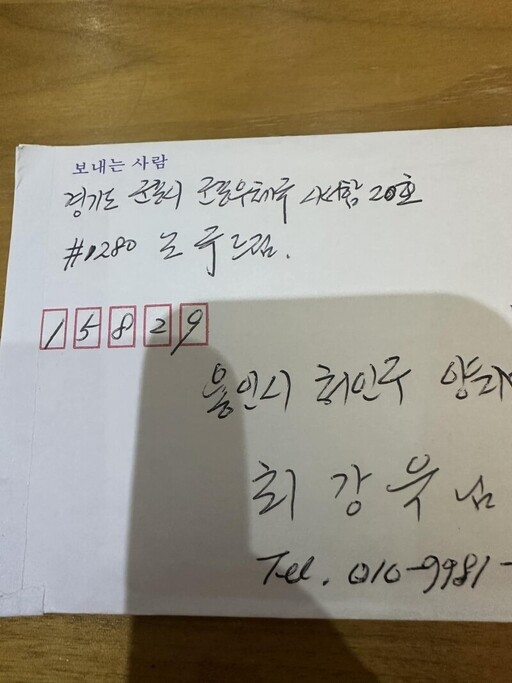 보내는 사람
경기도 군포시 군포우체국 사서함 20호
#1280 조 국 드림.
15829
용인시 처인구 양지
최 강 욱 님
Tel. 010-9981-